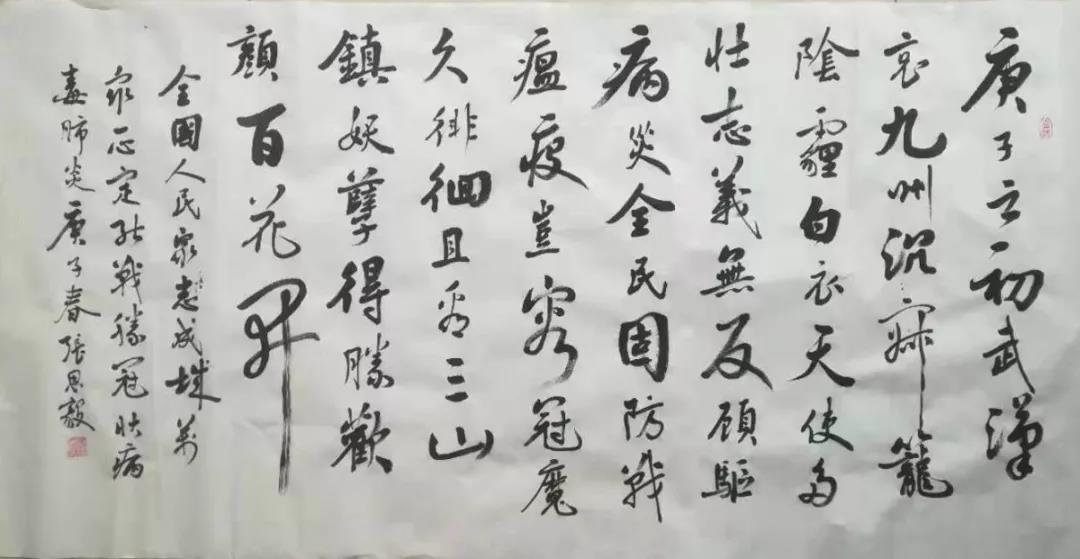 庚子之初武漢
哀九州沉寂籠
陰霾白衣天使多
壯志義無反顧驅
病炎全民固防戰
瘟疫豈容冠魔
久徘徊且看三山
鎮妖孽得勝歡
顏百花開
全國人民眾志成城萬
眾一心定能戰勝冠狀病
毒肺炎庚子春張思毅